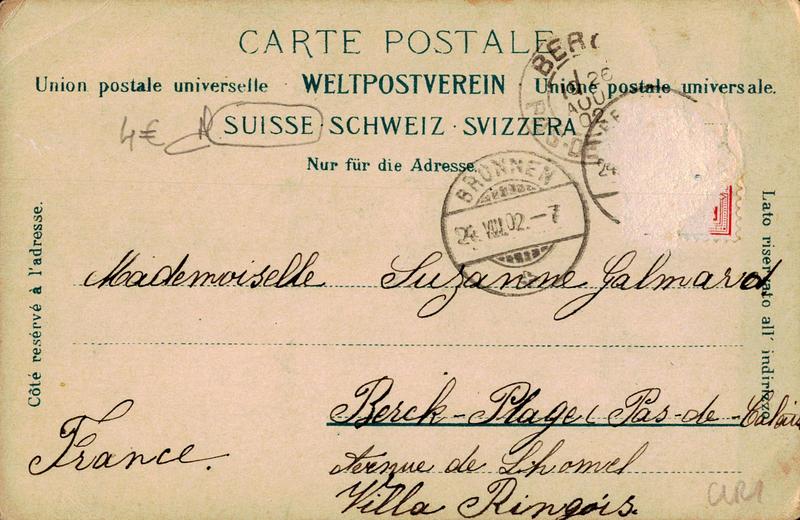 CARTE POSTALE
Union postale universelle WELTPOSTVEREIN Unione postale universale.
4€ SUISSE · SCHWEIZ · SVIZZERA
Nur für die Adresse.
26
AOU
02
BRUNNEN
24. VIII. 02. – 7
Côté resérvé à l'adresse.
Lato riservato all' indirizzo.
Mademoiselle Suzanne Galmard
Berck-Plage (Pas-de-Calais
France.
Avenue de Lhomel
Villa Ringois.